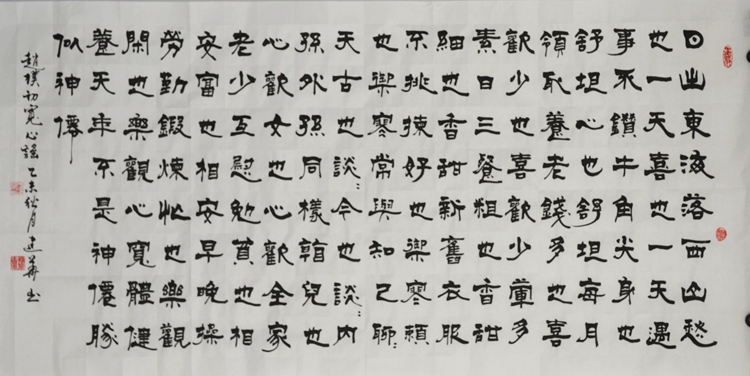 日出東海落西山愁
也一天喜也一天遇
事不鑽牛角尖身也
舒坦心也舒坦每月
領取養老錢多也喜
歡少也喜歡少葷多
素日三餐粗也香甜
細也香甜新舊衣服
不挑揀好也禦寒賴
也禦寒常與知己聊:
天古也談:今也談:内
孫外孫同樣兒也
心歡女也心歡全家
老少互慰勉貧也相
安富也相安早晚操
勞勤鍛煉忙也樂觀
閑也樂觀心寬體健
養天年不是神僊勝
似神僊
趙樸初寬心謠 乙未秋月 建華書